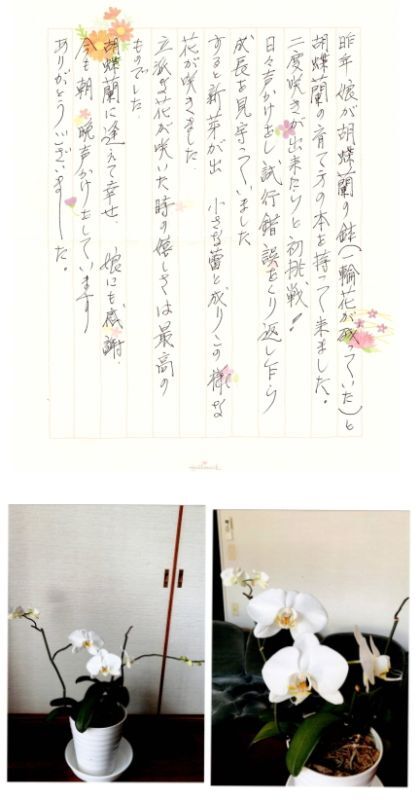 昨年 娘が胡蝶蘭の鉢(一輪花が残っていた)と
胡蝶蘭の育て方の本を持って来ました。
二度咲きが出来たらと初挑戦!
日々声かけをし試行錯誤をくり返し乍ら
成長を見守っていました
すると新芽が出 小さな蕾と成りこの様な
花が咲きました
立派な花が咲いた時の嬉しさは最高の
ものでした
胡蝶蘭に逢えて幸せ 娘にも感謝
今も朝 晩声かけをしています
ありがとうございました。
Hallmark